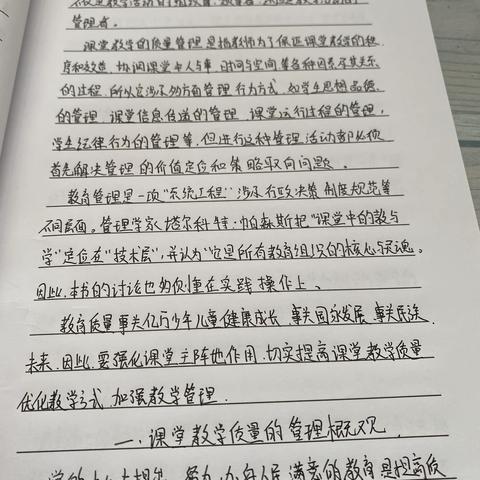 管理者。
课堂教学的质量管理是指教师为了保证课堂教学的秩
序和效益,协调课堂中人与事,时间与空间等各种因素及其关系
的过程,所以它涉及多方面管理行为方式,如学生思想品德
的管理、课堂信息传递的管理、课堂运行过程的管理,
学生纪律行为的管理等,但进行这种管理活动都必须
首先解决管理的价值定位和策略取向问题。
教育管理是一项“系统工程”涉及行政决策、制度规范等
不同层面。管理学家塔尔科特·帕森斯把“课堂中的教与
学”定位在“技术层”,并认为“它是所有教育组织的核心与灵魂。
因此,本书的讨论也多侧重在实践操作上、
教育质量事关亿万少年儿童健康成长、事关国家发展、事关民族
未来,因此,要强化课堂主阵地作用,切实提高课堂教学质量
优化教学方式,加强教学管理.
一、课堂教学质量的管理概况